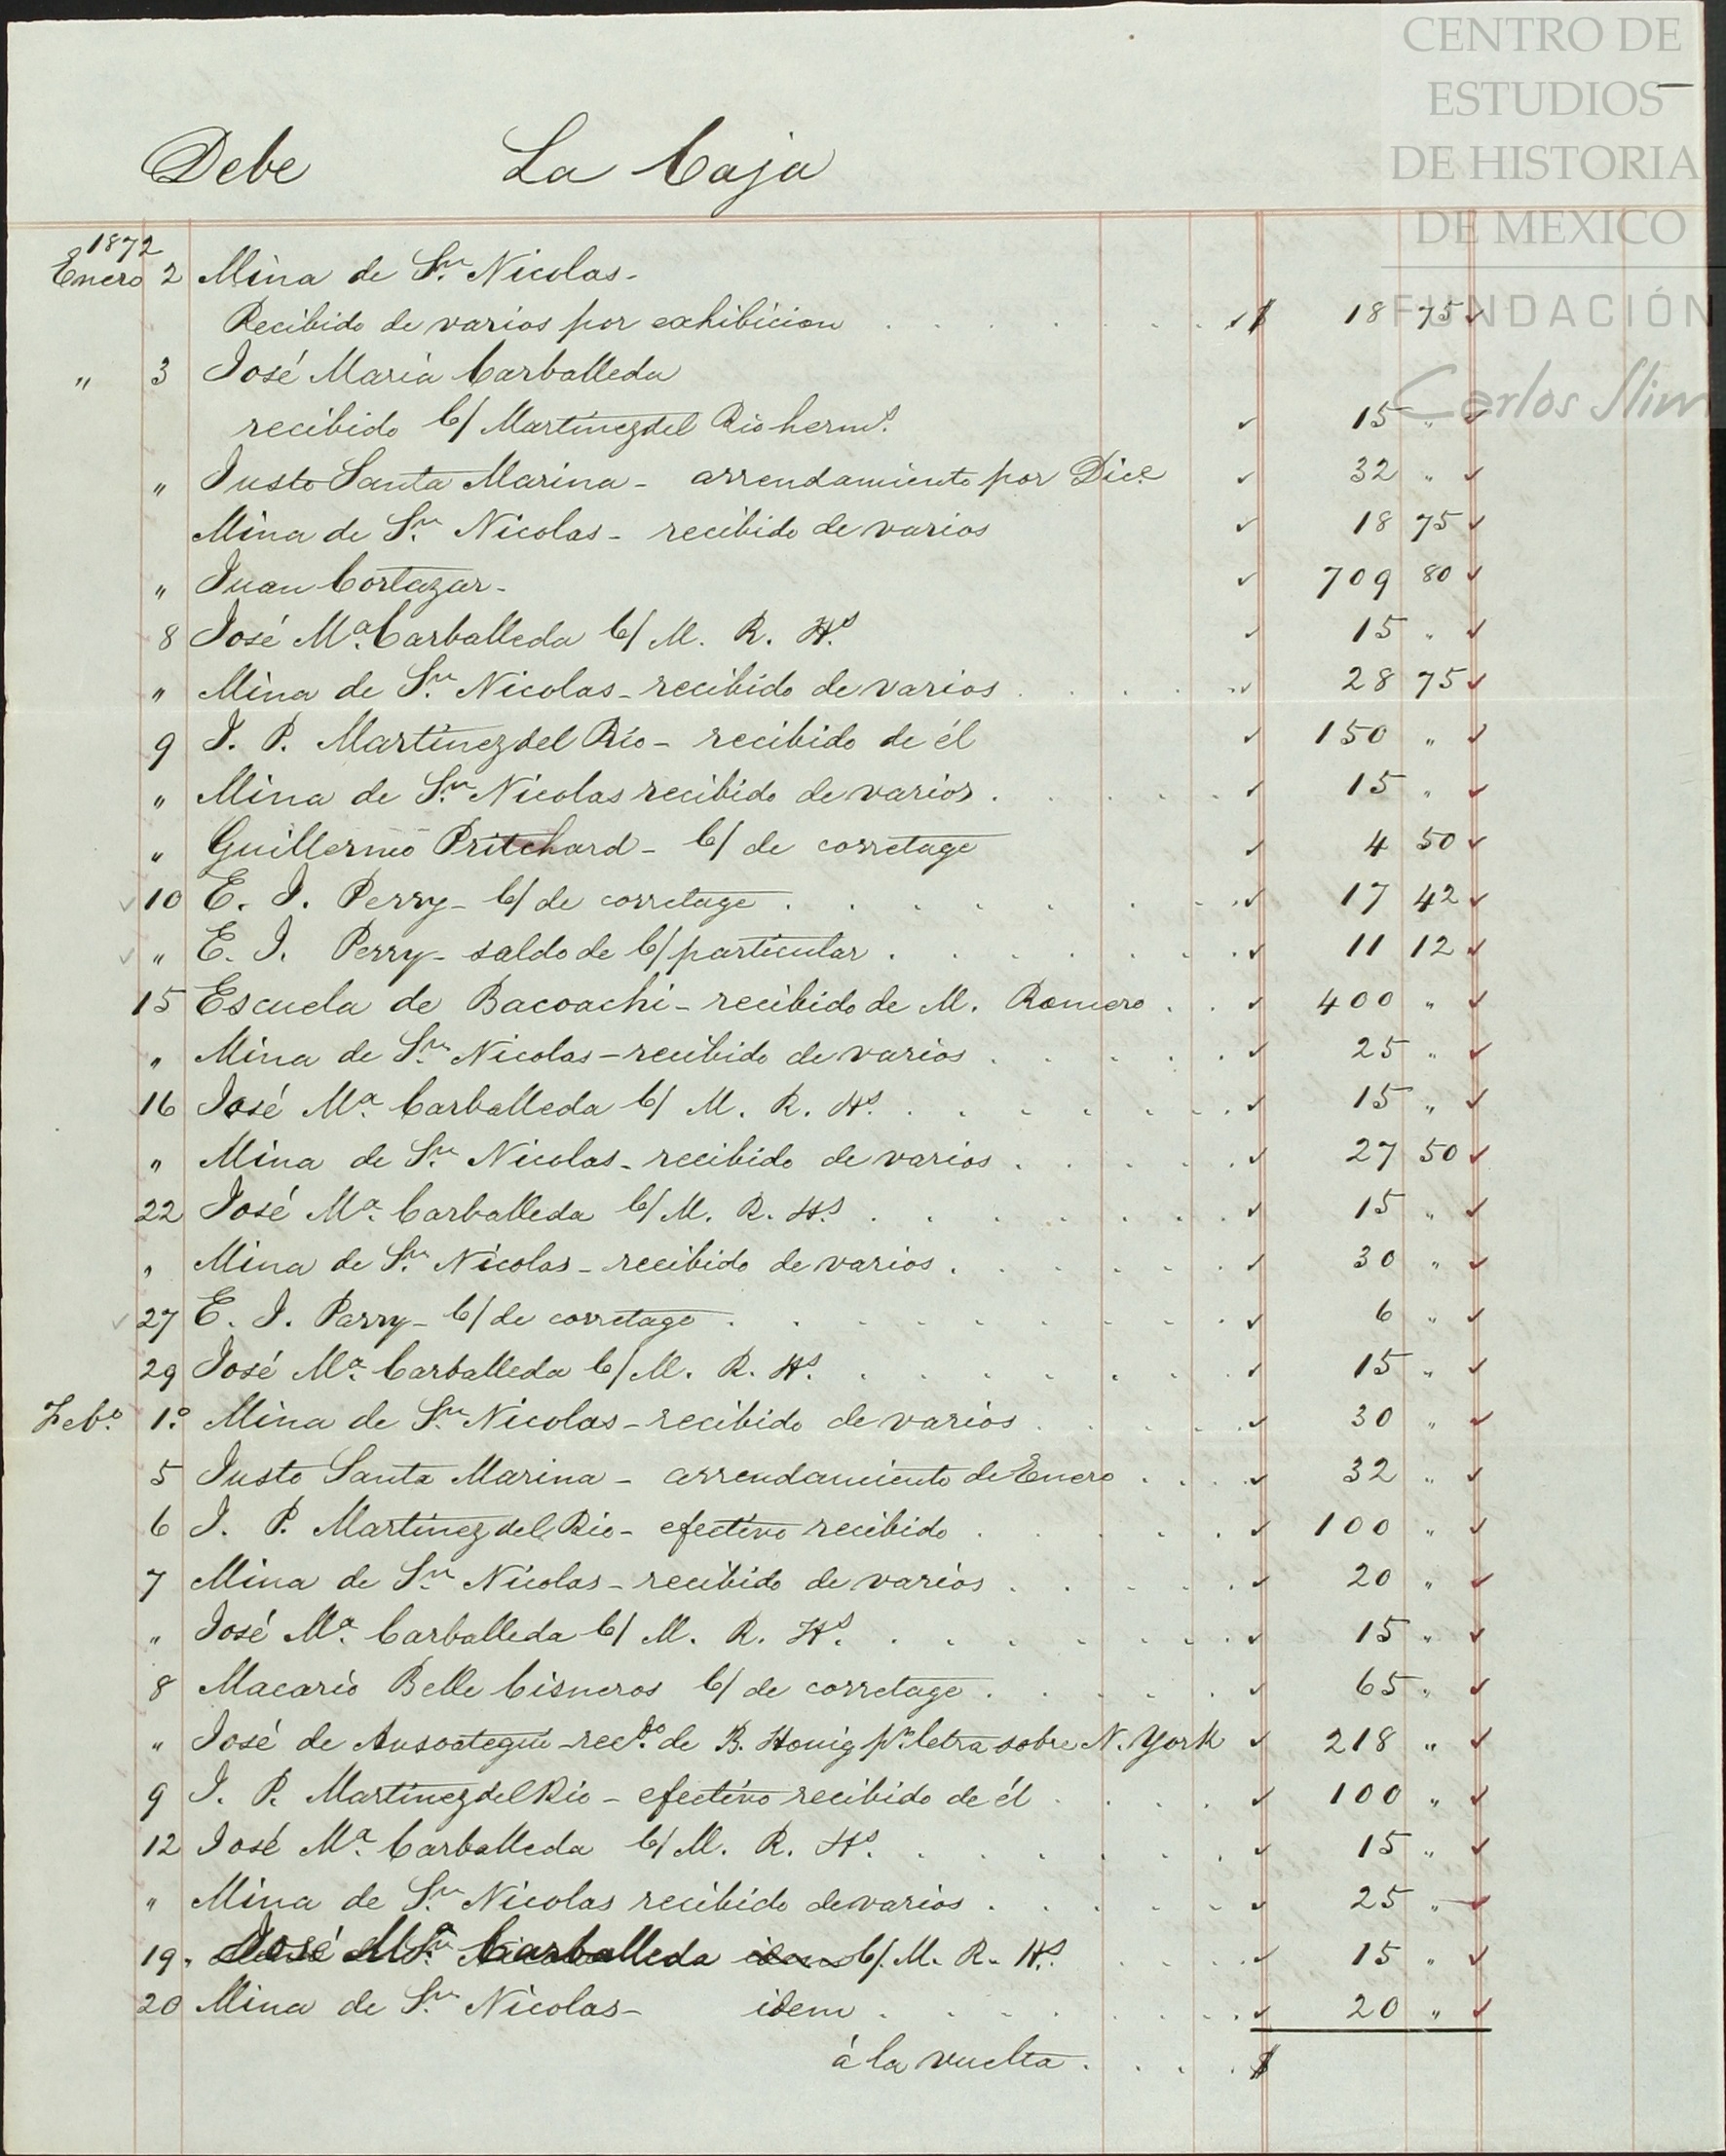 CENTRO DE
ESTUDIOS
DE HISTORIA
DE MEXICO
FUNDACIÓN
Carlos Slim
Debe La Caja
1872
Enero 2 Mina de Sn. Nicolas-
Recibido de varios por exhibicion . . . . . . . $ 18 75
" 3 José Maria Carballeda
recibido C/ Martinez del Rio hermS. 15 "
" Justo Santa Marina - arrendamiento por Dice 32 "
Mina de Sn. Nicolas - recibido de varios 18 75
" Juan Cortazar - 709 80
8 José Ma. Carballeda C/ M. R. HS. 15 "
" Mina de Sn. Nicolas - recibido de varios . . . . 28 75
9 J. P. Martinez del Rio - recibido de él 150 "
" Mina de Sn. Nicolas recibido de varios . . . . . 15 "
" Guillermo Pritchard - C/ de corretage 4 50
10 E. J. Perry - C/ de corretage . . . . . . . 17 42
" E. J. Perry - saldo de C/ particular . . . . . . 11 12
15 Escuela de Bacoachi - recibido de M. Romero . . 400 "
" Mina de Sn. Nicolas - recibido de varios . . . . . 25 "
16 José Ma. Carballeda C/ M. R. HS. . . . . . . 15 "
" Mina de Sn. Nicolas - recibido de varios . . . . . 27 50
22 José Ma. Carballeda C/ M. R. HS. . . . . . . 15 "
" Mina de Sn. Nicolas - recibido de varios . . . . . 30 "
27 E. J. Perry - C/ de corretage . . . . . . . . 6 "
29 José Ma. Carballeda C/ M. R. HS. . . . . . . 15 "
Febo. 1.º Mina de Sn. Nicolas - recibido de varios . . . . 30 "
5 Justo Santa Marina - arrendamiento de Enero . . . 32 "
6 J. P. Martinez del Rio - efectivo recibido . . . . . 100 "
7 Mina de Sn. Nicolas - recibido de varios . . . . . 20 "
" José Ma. Carballeda C/ M. R. HS. . . . . . . . 15 "
8 Macario Belle Cisneros C/ de corretage . . . . . 65 "
" José de Ansoategui - recdo. de B. Honig pr. letra sobre N. York 218 "
9 J. P. Martinez del Rio - efectivo recibido de él . . . . 100 "
12 José Ma. Carballeda C/ M. R. HS. . . . . . . 15 "
" Mina de Sn. Nicolas recibido de varios . . . . . 25 "
19 " José Ma. Carballeda idem C/ M. R. HS. . . . . 15 "
20 Mina de Sn. Nicolas - idem . . . . . . . 20 "
á la vuelta . . . . $